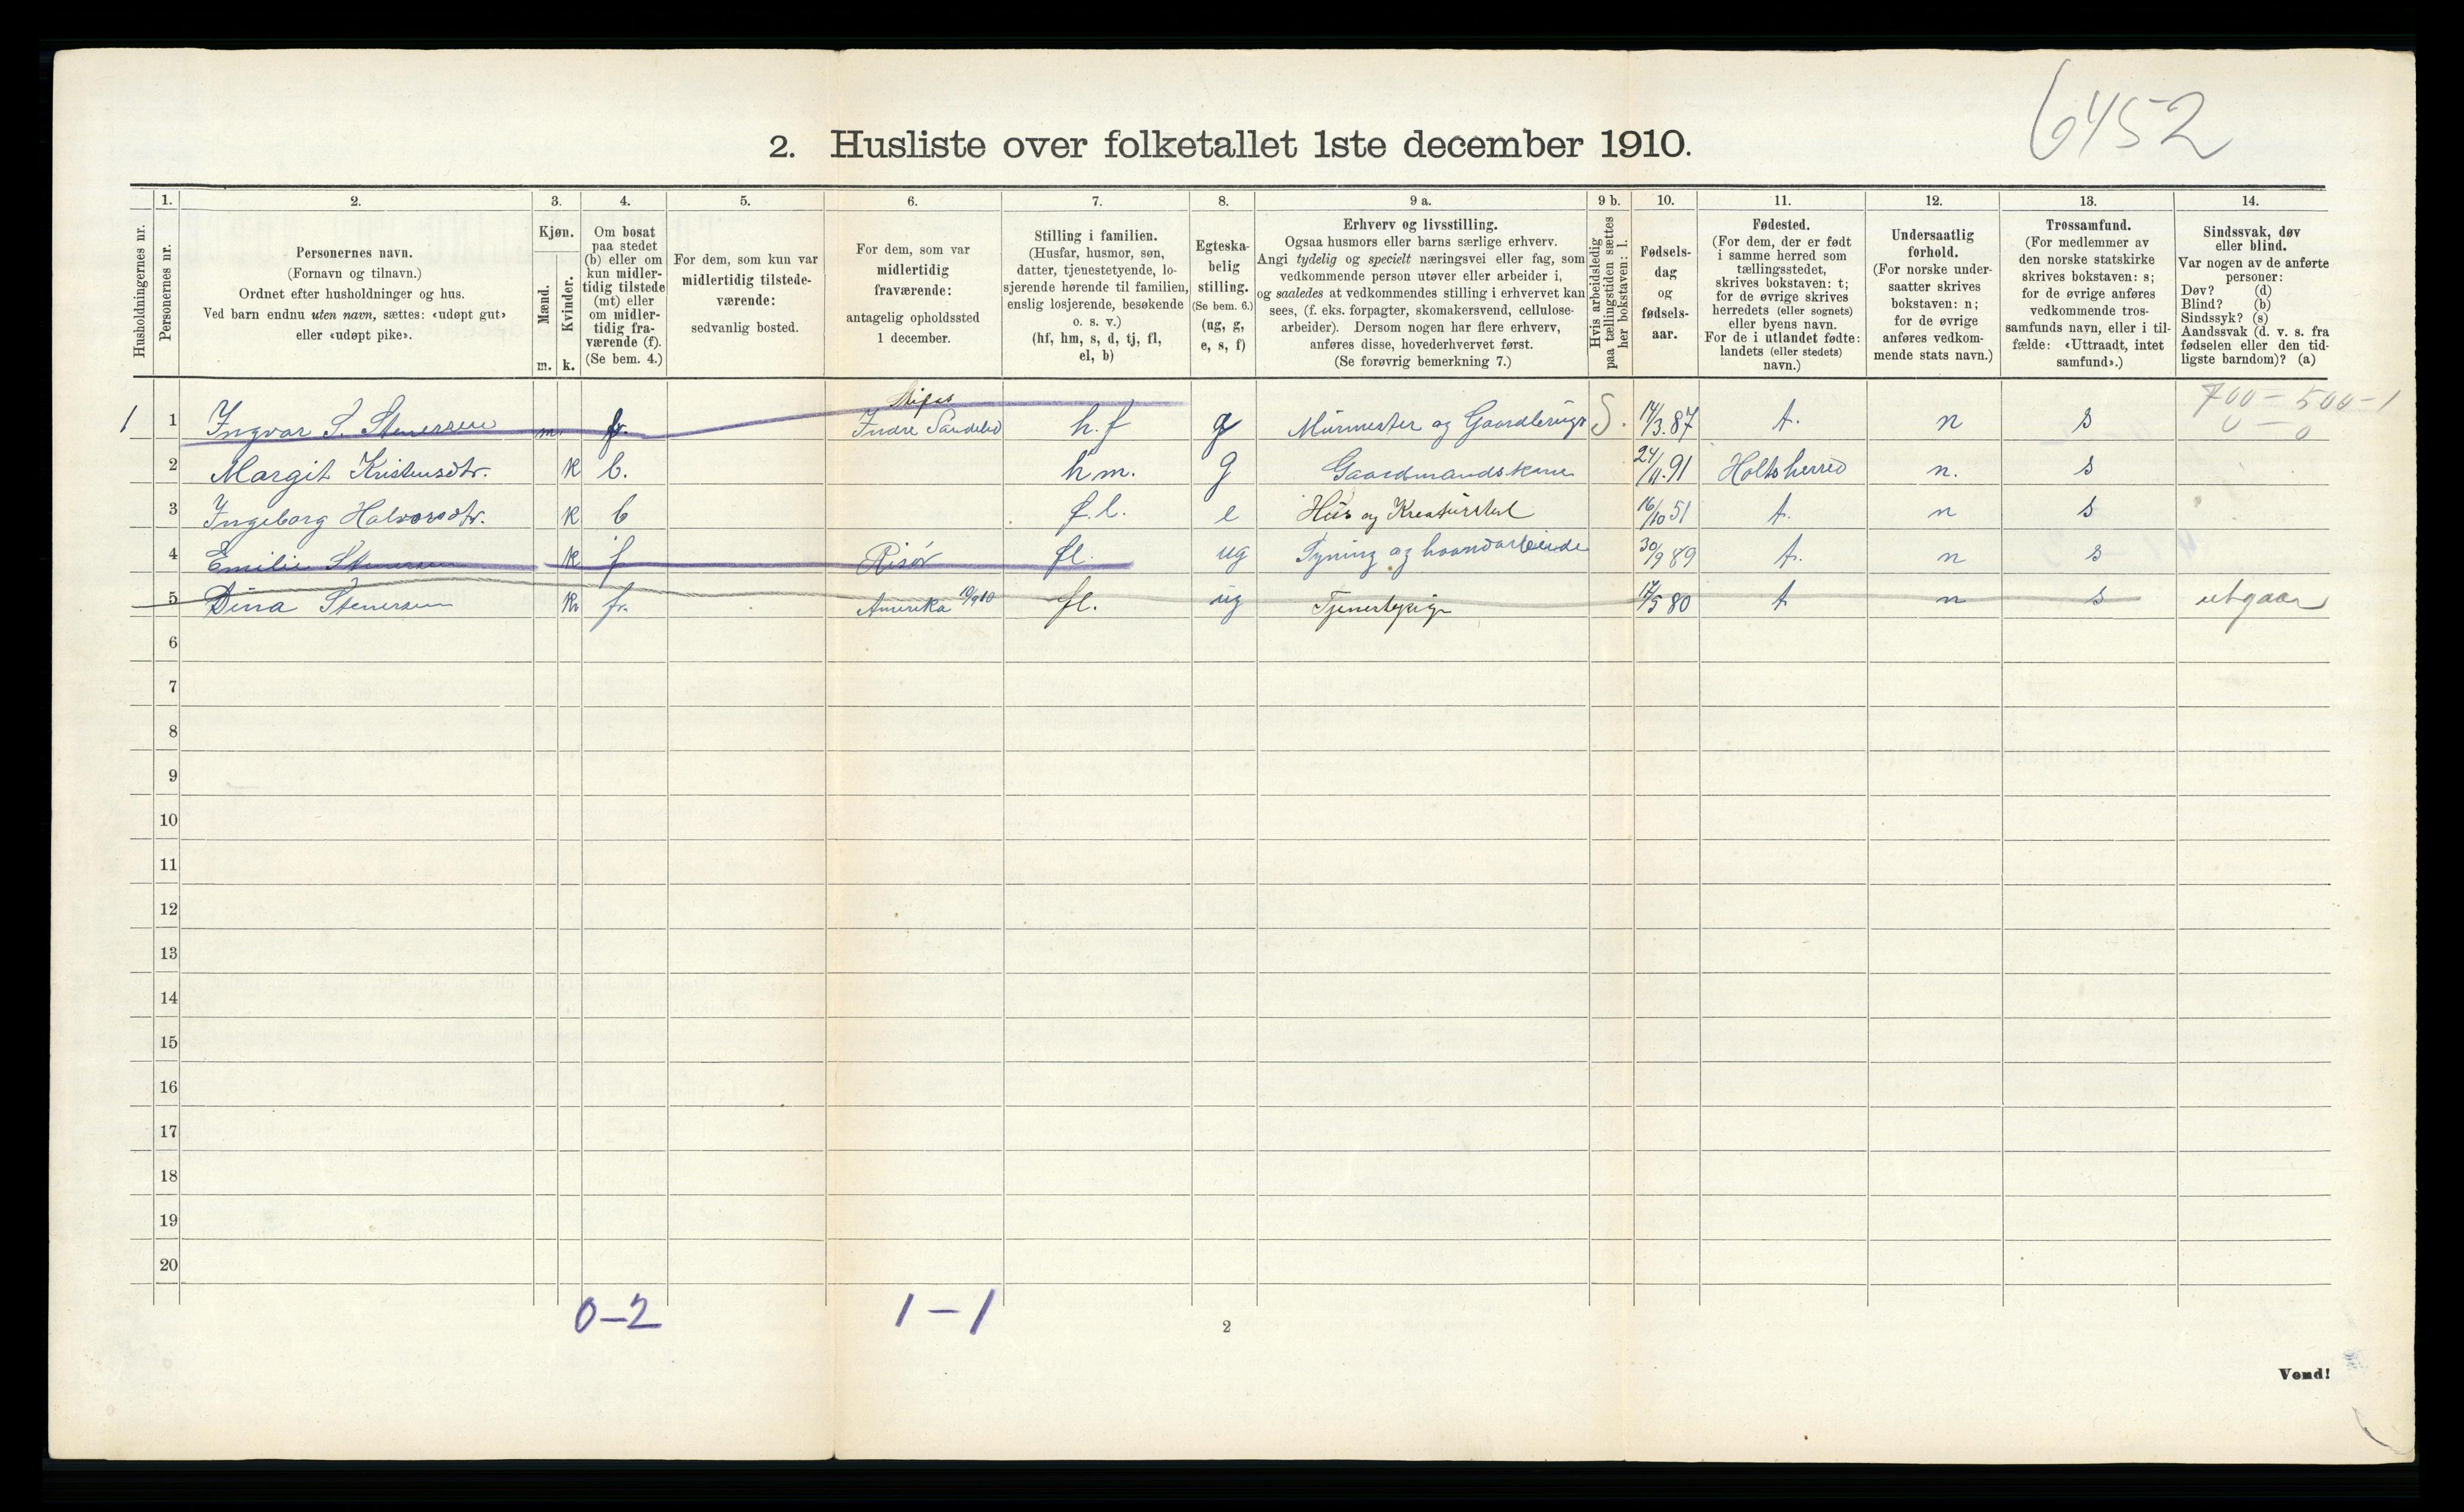 6452
2. Husliste over folketallet 1ste december 1910.
Husholdningernes nr.
1.
Personernes nr.
2.
Personernes navn.
(Fornavn og tilnavn.)
Ordnet efter husholdninger og hus.
Ved barn endnu uten navn, sættes: «udøpt gut»
eller «udøpt pike».
3.
Kjøn.
Mænd.
Kvinder.
m. k.
4.
Om bosat
paa stedet
(b) eller om
kun midler-
tidig tilstede
(mt) eller
om midler-
tidig fra-
værende (f).
(Se bem. 4.)
5.
For dem, som kun var
midlertidig tilstede-
værende:
sedvanlig bosted.
6.
For dem, som var
midlertidig
fraværende:
antagelig opholdssted
1 december.
7.
Stilling i familien.
(Husfar, husmor, søn,
datter, tjenestetyende, lo-
sjerende hørende til familien,
enslig losjerende, besøkende
o. s. v.)
(hf, hm, s, d, tj, fl,
el, b)
8.
Egteska-
belig
stilling.
(Se bem. 6.)
(ug, g,
e, s, f)
9 a.
Erhverv og livsstilling.
Ogsaa husmors eller barns særlige erhverv.
Angi tydelig og specielt næringsvei eller fag, som
vedkommende person utøver eller arbeider i,
og saaledes at vedkommendes stilling i erhvervet kan
sees, (f. eks. forpagter, skomakersvend, cellulose-
arbeider). Dersom nogen har flere erhverv,
anføres disse, hovederhvervet først.
(Se forøvrig bemerkning 7.)
9 b.
Hvis arbeidsledig
paa tællingstiden sættes
her bokstaven: l.
10.
Fødsels-
dag
og
fødsels-
aar.
11.
Fødested.
(For dem, der er født
i samme herred som
tællingsstedet,
skrives bokstaven: t;
for de øvrige skrives
herredets (eller sognets)
eller byens navn.
For de i utlandet fødte:
landets (eller stedets)
navn.)
12.
Undersaatlig
forhold.
(For norske under-
saatter skrives
bokstaven: n;
for de øvrige
anføres vedkom-
mende stats navn.)
13.
Trossamfund.
(For medlemmer av
den norske statskirke
skrives bokstaven: s;
for de øvrige anføres
vedkommende tros-
samfunds navn, eller i til-
fælde: «Uttraadt, intet
samfund».)
14.
Sindssvak, døv
eller blind.
Var nogen av de anførte
personer:
Døv? (d)
Blind? (b)
Sindssyk? (s)
Aandssvak (d. v. s. fra
fødselen eller den tid-
ligste barndom)? (a)
700 - 500 - 1
0 - 0
1 1 Ingvar S. Stenersen m. fr. Indre Søndeled h.f g Murmester og Gaardbruger S. 14/3.87 t. n s
2 Margit Kristensdtr. k b. h m. g Gaardmandskone 24/11.91 Holts herred n. s
3 Ingeborg Halvorsdtr. k b f.l. e Hus og Kreaturstel 16/10 51 t. n s
4 Emilie Stenersen k f Risør fl. ug Syning og haandarbeide 30/9 89 t. n s
5 Dina Stenersen k fr. Amerika 10/9 10 fl. ug Tjenestepige 17/5 80 t n s utgaar
6
7
8
9
10
11
12
13
14
15
16
17
18
19
20
0-2 1-1
2
Vend!